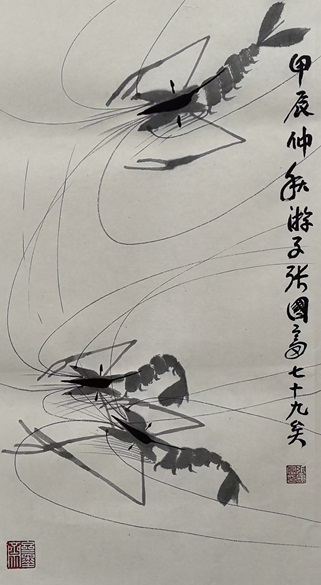 甲辰仲秋游子张國富七十九矣